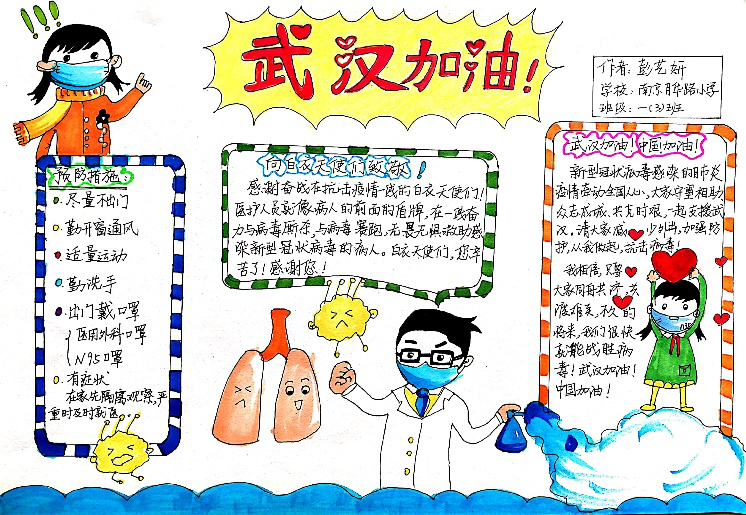 武汉加油!
作者: 彭艺妍
学校: 南京月华路小学
班级: 一(3)班
预防措施
尽量不出门
勤开窗通风
适量运动
勤洗手
出门戴口罩
医用外科口罩
N95口罩
有症状
在家先隔离观察,严
重时及时就医
向白衣天使们致敬!
感谢奋战在抗击疫情一线的白衣天使们!
医护人员就像病人的前面的盾牌,在一线奋
力与病毒厮杀,与病毒
无畏无惧救助感
染新型冠状病毒的病人。白衣天使们,您辛
苦了!感谢您!
武汉加油!中国加油!
新型冠状病毒感染的肺炎
疫情牵动全国人心,大家守望相助
众志成城,共克时艰,一起支援武
汉,请大家减少外出,加强防
护,从我做起,抗击病毒!
我相信,只要
大家同舟共济,共
渡难关,不久的
将来,我们很快
就能战胜病
毒!武汉加油!
中国加油!